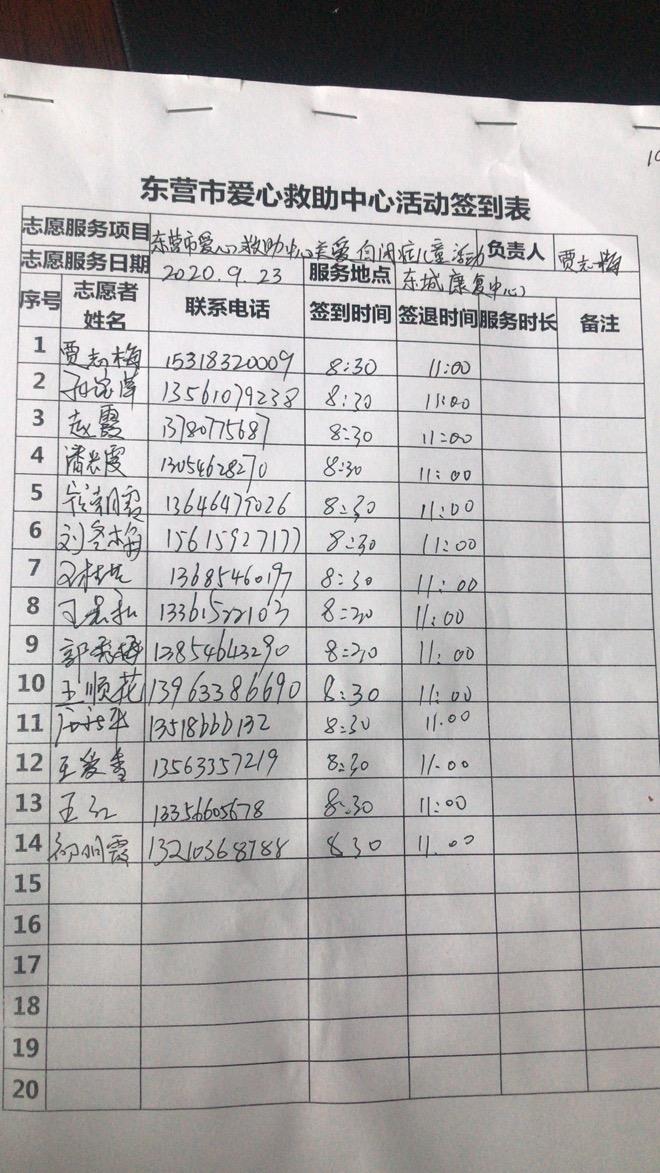 东营市爱心救助中心活动签到表
志愿服务项目 东营市爱心救助中心关爱自闭症儿童活动 负责人 贾志梅
志愿服务日期 2020.9.23 服务地点 东城康复中心
序号 志愿者姓名 联系电话 签到时间 签退时间 服务时长 备注
1 贾志梅 15318320009 8:30 11:00
2 13561079238 8:30 11:00
3 赵霞 13780775687 8:30 11:00
4 潘 霞 13054628270 8:30 11:00
5 朝霞 13646479026 8:30 11:00
6 刘冬梅 15615927177 8:30 11:00
7 王桂 13685460197 8:30 11:00
8 王 13361522103 8:30 11:00
9 郭秀梅 13854643290 8:30 11:00
10 王顺花 13963386690 8:30 11:00
11 13518666132 8:30 11.00
12 王爱香 13563357219 8:30 11.00
13 王红 13356605678 8:30 11:00
14 霞 13210368788 8 30 11.00
15
16
17
18
19
20